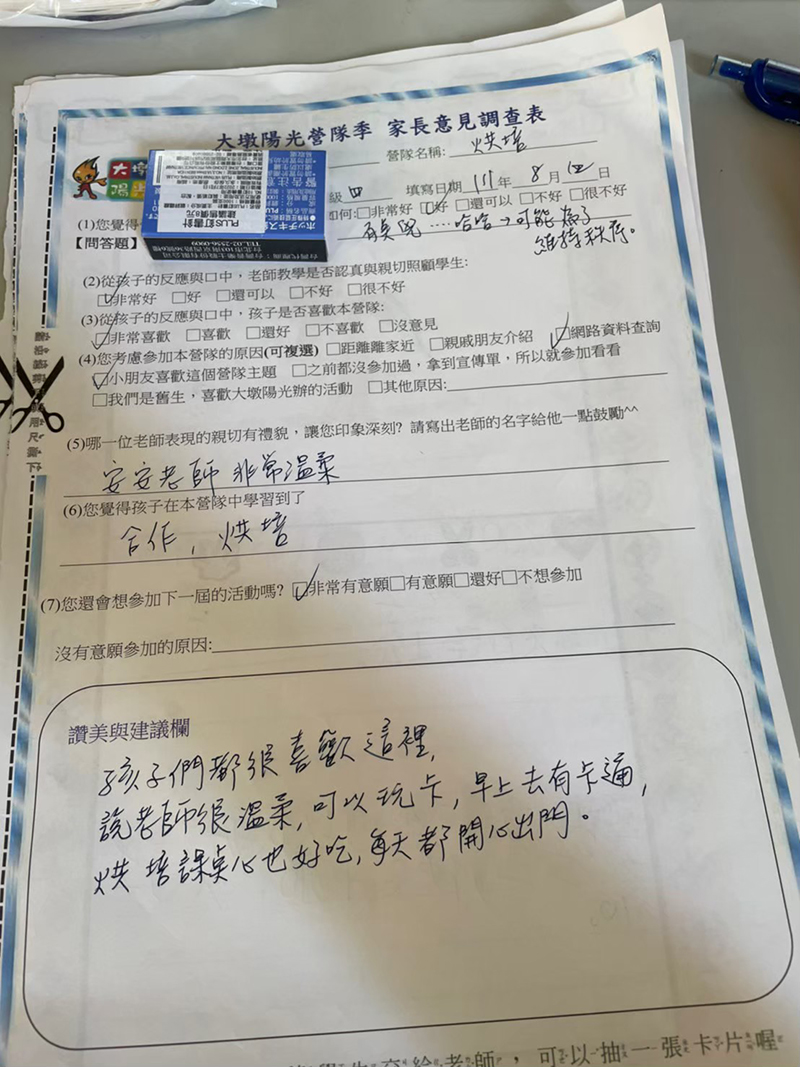 大墩陽光營隊季 家長意見調查表
大墩
陽光
營隊名稱: 烘培
級 四 填寫日期 111 年 8 月 四 日
(1)您覺得
如何:□非常好 ☑好 □還可以 □不好 □很不好
【問答題】
有點兇 ....哈哈→可能為了
維持秩序。
PLUS釘書針
建議售價8元
警告注意
ホッチキス
TEL:02-2556-0909
(2)從孩子的反應與口中，老師教學是否認真與親切照顧學生:
☑非常好 □好 □還可以 □不好 □很不好
(3)從孩子的反應與口中，孩子是否喜歡本營隊:
☑非常喜歡 □喜歡 □還好 □不喜歡 □沒意見
(4)您考慮參加本營隊的原因(可複選) □距離離家近 □親戚朋友介紹 ☑網路資料查詢
☑小朋友喜歡這個營隊主題 □之前都沒參加過，拿到宣傳單，所以就參加看看
□我們是舊生，喜歡大墩陽光辦的活動 □其他原因:
(5)哪一位老師表現的親切有禮貌，讓您印象深刻? 請寫出老師的名字給他一點鼓勵^^
安安老師 非常溫柔
(6)您覺得孩子在本營隊中學習到了
合作，烘培
(7)您還會想參加下一屆的活動嗎? ☑非常有意願□有意願□還好□不想參加
沒有意願參加的原因:
讚美與建議欄
孩子們都很喜歡這裡，
說老師很溫柔，可以玩卡，早上去有卡通，
烘培課桌心也好吃，每天都開心出門。
交給老師，可以抽一張卡片喔